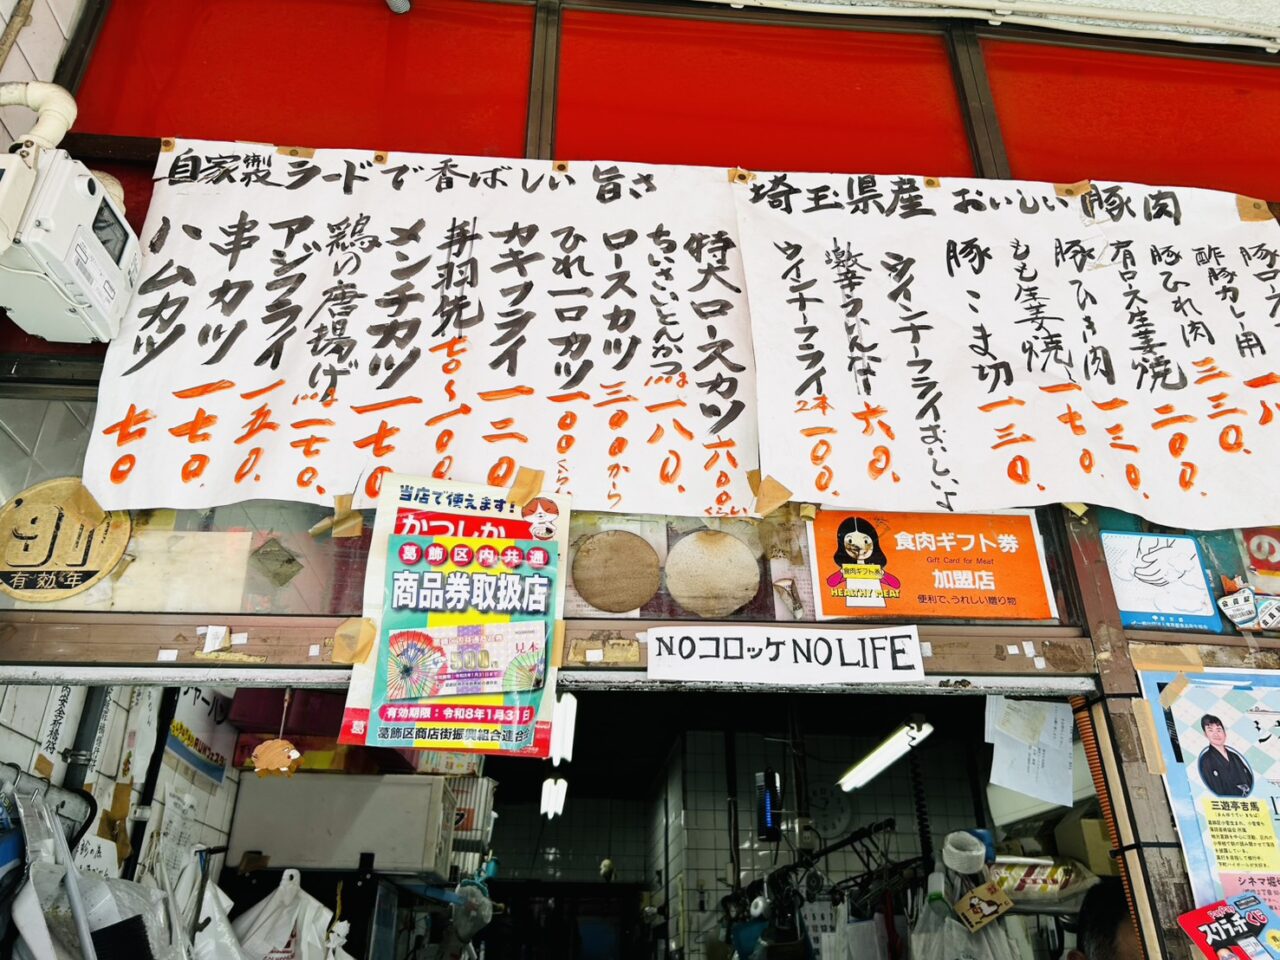 自家製ラードで香ばしい旨さ
特大ロースカツ 六〇〇くらい
ちいさいとんかつ 一八〇.
ロースカツ 三〇〇から
ひれ一口カツ 一〇〇くらい
カキフライ 一二〇
手羽先 七〇〜一〇〇
メンチカツ 一七〇
鶏の唐揚げ 一七〇.
アジフライ 一五〇.
串カツ 一七〇.
ハムカツ 七〇
埼玉県産 おいしい豚肉
酢豚カレー用 三三〇.
豚ひれ肉 二〇〇.
有ロース生姜焼
豚ひき肉 一三〇.
もも生姜焼 一七〇.
豚こま切 一三〇.
ウインナーフライおいしいよ
激辛ういんなー 六〇.
ウインナーフライ 2本 一〇〇.
'90
有効年
当店で使えます!
かつしか
葛飾区内共通
商品券取扱店
500
見本
有効期限:令和8年1月31日
葛飾区商店街振興組合連合会
食肉ギフト券
Gift Card for Meat
加盟店
便利で、うれしい贈り物
食肉ギフト券
HEALTHY MEAT
NOコロッケ NO LIFE
三遊亭吉馬
シネマ堀切
PayPay
スクラッチくじ